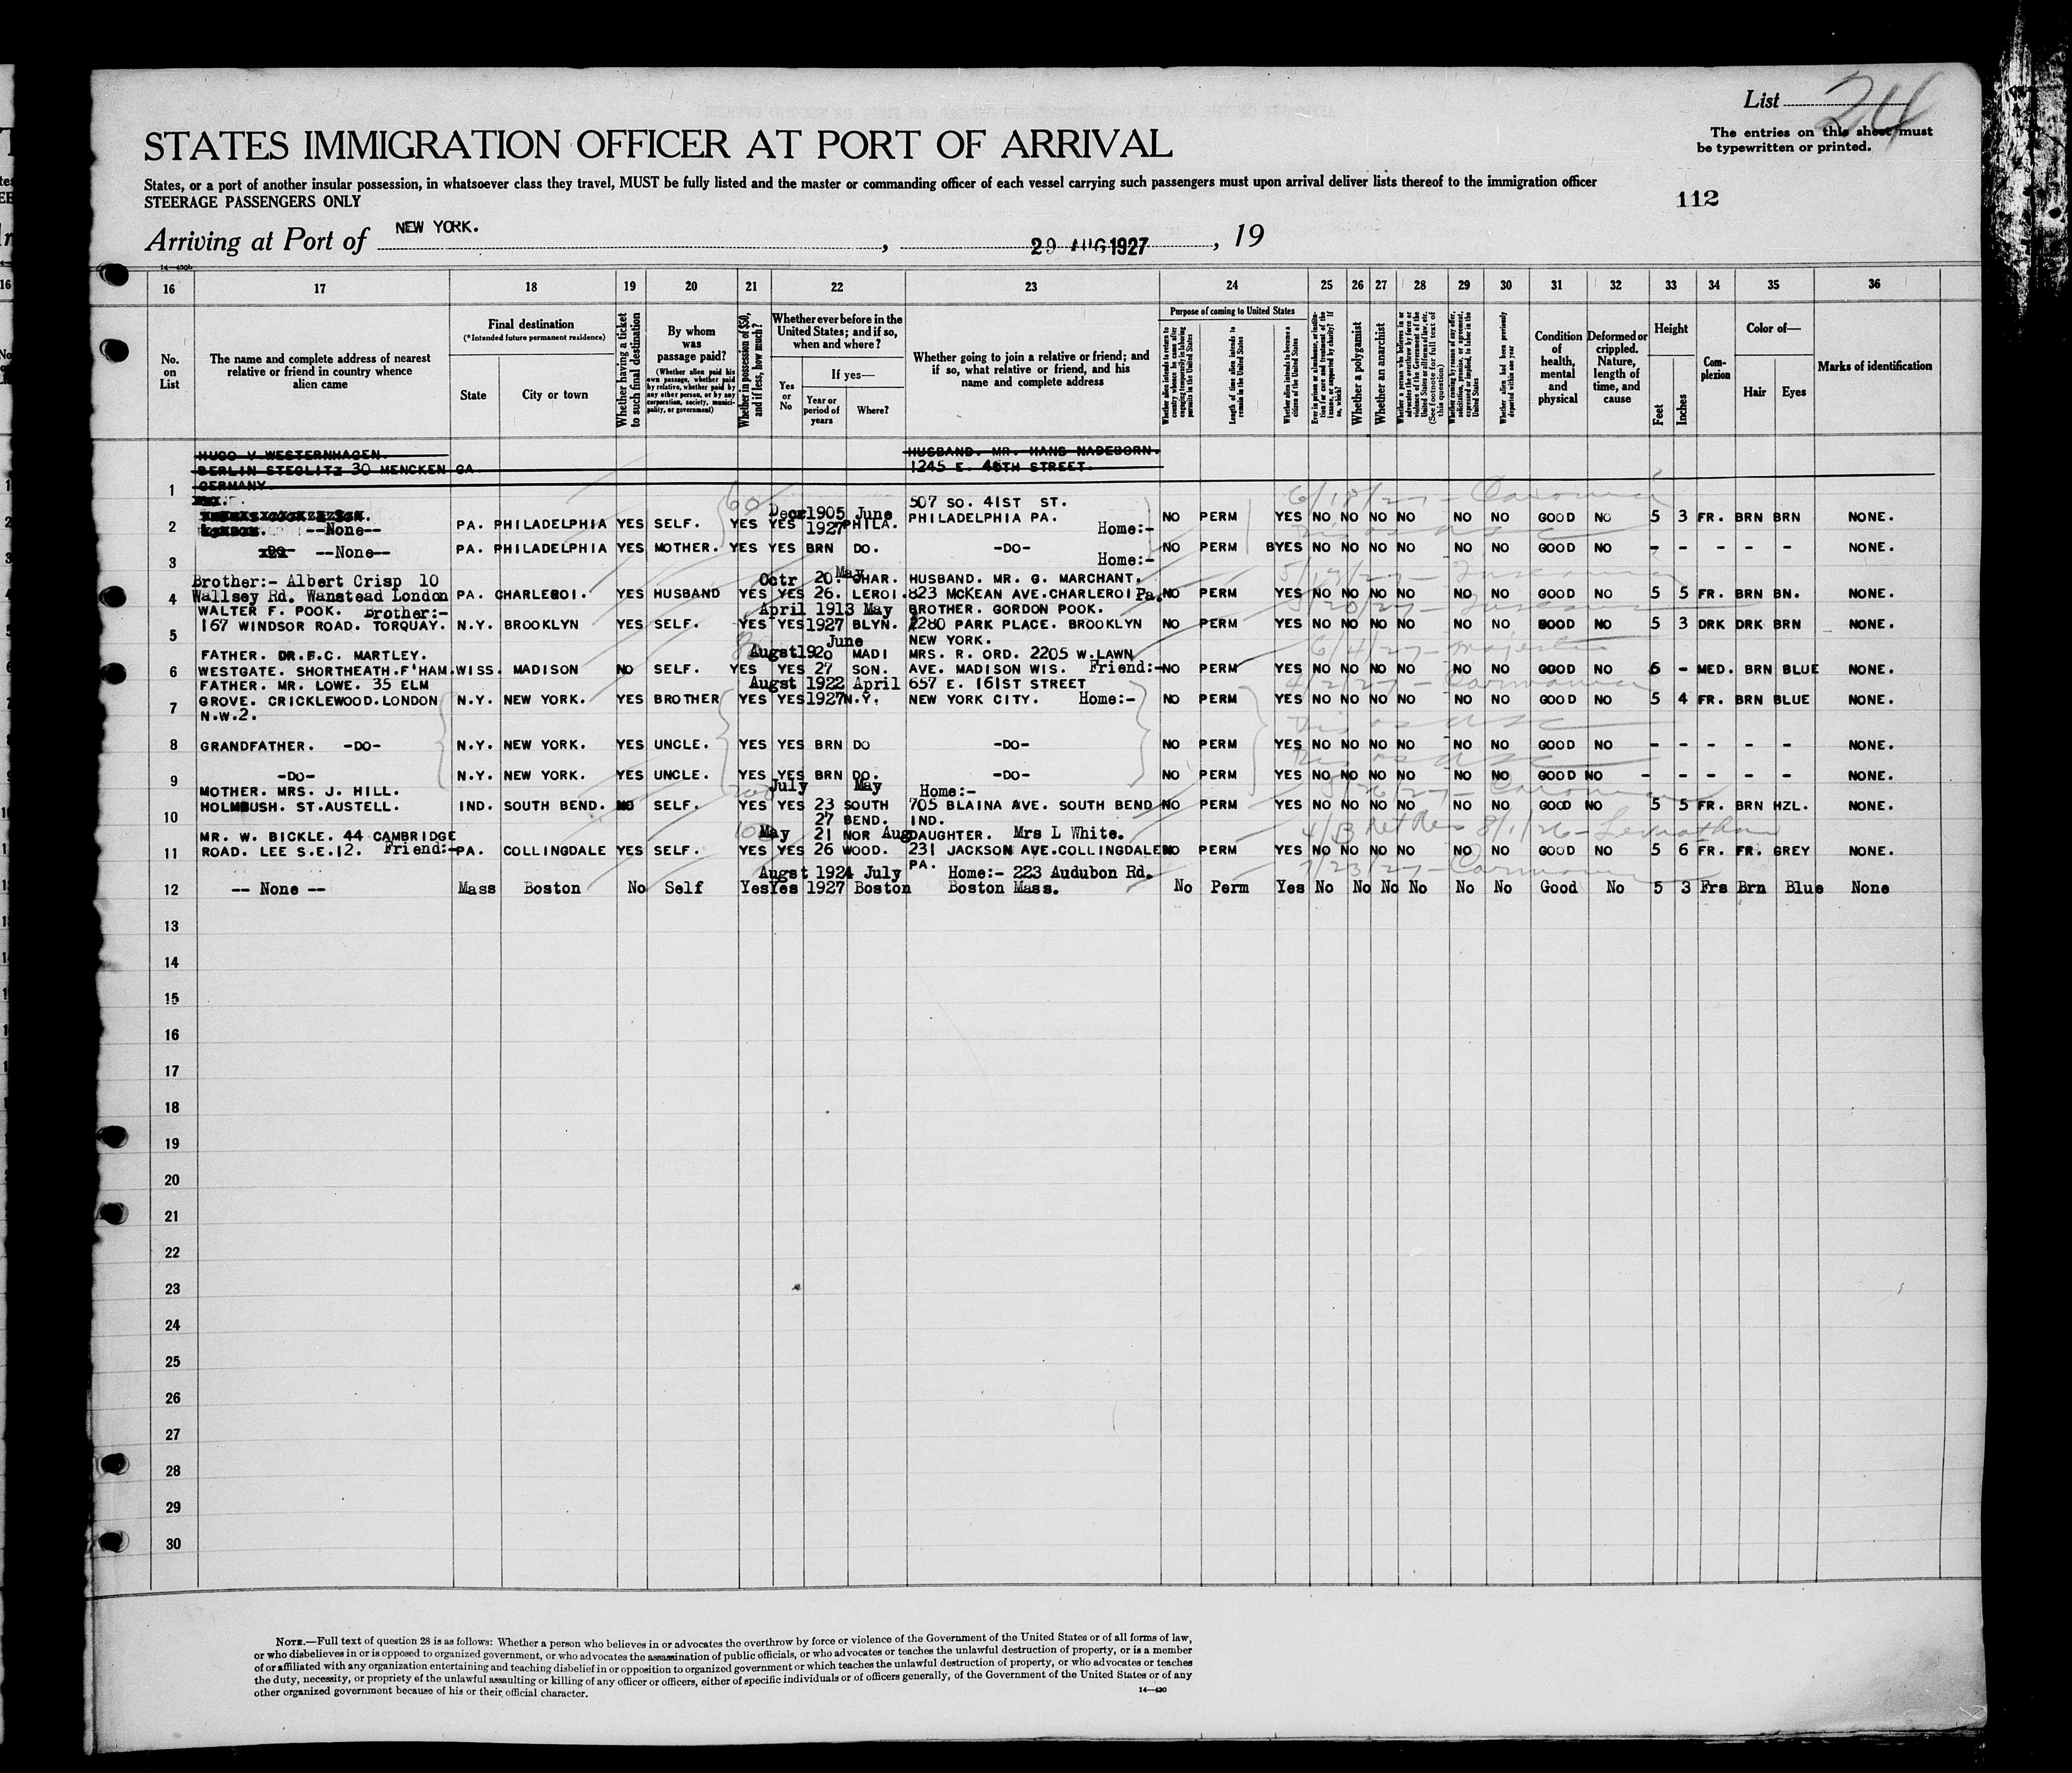 List 24
The entries on this sheet must
be typewritten or printed.
STATES IMMIGRATION OFFICER AT PORT OF ARRIVAL
States, or a port of another insular possession, in whatsoever class they travel, MUST be fully listed and the master or commanding officer of each vessel carrying such passengers must upon arrival deliver lists thereof to the immigration officer
STEERAGE PASSENGERS ONLY
112
Arriving at Port of NEW YORK. , 29 AUG 1927 , 19
14—430b
16 17 18 19 20 21 22 23 24 25 26 27 28 29 30 31 32 33 34 35 36
No. on List
The name and complete address of nearest relative or friend in country whence alien came
Final destination
(*Intended future permanent residence)
State
City or town
Whether having a ticket to such final destination
By whom was passage paid?
(Whether alien paid his own passage, whether paid by relative, whether paid by any other person, or by any corporation, society, municipality, or government)
Whether in possession of $50, and if less, how much?
Whether ever before in the United States; and if so, when and where?
Yes or No
If yes—
Year or period of years
Where?
Whether going to join a relative or friend; and if so, what relative or friend, and his name and complete address
Purpose of coming to United States
Whether alien intends to return to country whence he came after engaging temporarily in laboring pursuits in the United States
Length of time alien intends to remain in the United States
Whether alien intends to become a citizen of the United States
Ever in prison or almshouse, or institution for care and treatment of the insane, or supported by charity? If so, which?
Whether a polygamist
Whether an anarchist
Whether a person who believes in or advocates the overthrow by force or violence of the Government of the United States or all forms of law, etc. (See footnote for full text of this question)
Whether coming by reason of any offer, solicitation, promise, or agreement, expressed or implied, to labor in the United States
Whether alien had been previously deported within one year
Condition of health, mental and physical
Deformed or crippled. Nature, length of time, and cause
Height
Feet
Inches
Complexion
Color of—
Hair
Eyes
Marks of identification
HUGO V WESTERNHAGEN. HUSBAND. MR. HANS NADEBORN.
BERLIN STEGLITZ 30 MENCKEN GA. 1245 E. 46TH STREET.
1 GERMANY
60 507 SO. 41ST ST. 6/18/27 - Caronia
Decr 1905 June PHILADELPHIA PA.
2 --None-- PA. PHILADELPHIA YES SELF. YES YES 1927 PHILA. Home:- NO PERM YES NO NO NO NO NO NO GOOD NO 5 3 FR. BRN BRN NONE.
3 -DO- --None-- PA. PHILADELPHIA YES MOTHER. YES YES BRN DO. -DO- Home:- NO PERM BYES NO NO NO NO NO NO GOOD NO - - - - - NONE.
Brother:- Albert Crisp 10 Octr 20. May CHAR. HUSBAND. MR. G. MARCHANT. 5/19/27 - Tuscania
4 Wallsey Rd. Wanstead London PA. CHARLEROI. YES HUSBAND YES YES 26. LEROI. 823 MCKEAN AVE. CHARLEROI Pa. NO PERM YES NO NO NO NO NO NO GOOD NO 5 5 FR. BRN BN. NONE.
WALTER F. POOK. Brother:- April 1913 May BROTHER. GORDON POOK.
5 167 WINDSOR ROAD. TORQUAY. N.Y. BROOKLYN YES SELF. YES YES 1927 BLYN. 1280 PARK PLACE. BROOKLYN NO PERM YES NO NO NO NO NO NO GOOD NO 5 3 DRK DRK BRN NONE.
June NEW YORK. 6/4/27 - Majestic
FATHER. DR.F.C. MARTLEY. Augst 1920 MADI MRS. R. ORD. 2205 W.LAWN
6 WESTGATE. SHORTHEATH.F'HAM. WISS. MADISON NO SELF. YES YES 27 SON. AVE. MADISON WIS. Friend:- NO PERM YES NO NO NO NO NO NO GOOD NO 6 - MED. BRN BLUE NONE.
FATHER. MR. LOWE. 35 ELM Augst 1922 April 657 E. 161ST STREET 4/2/27 - Carmania
7 GROVE. CRICKLEWOOD.LONDON N.Y. NEW YORK. YES BROTHER YES YES 1927 N.Y. NEW YORK CITY. Home:- NO PERM YES NO NO NO NO NO NO GOOD NO 5 4 FR. BRN BLUE NONE.
N.W.2.
8 GRANDFATHER. -DO- N.Y. NEW YORK. YES UNCLE. YES YES BRN DO -DO- NO PERM YES NO NO NO NO NO NO GOOD NO - - - - - NONE.
9 -DO- N.Y. NEW YORK. YES UNCLE. YES YES BRN DO. -DO- NO PERM YES NO NO NO NO NO NO GOOD NO - - - - - NONE.
MOTHER. MRS. J. HILL. July May Home:-
10 HOLMBUSH. ST.AUSTELL. IND. SOUTH BEND. NO SELF. YES YES 23 SOUTH 705 BLAINA AVE. SOUTH BEND NO PERM YES NO NO NO NO NO NO GOOD NO 5 5 FR. BRN HZL. NONE.
27 BEND. IND.
MR. W. BICKLE. 44 CAMBRIDGE 100 May 21 NOR Aug DAUGHTER. Mrs L White. 8/1/26 - Leviathan
11 ROAD. LEE S.E.12. Friend:- PA. COLLINGDALE YES SELF. YES YES 26 WOOD. 231 JACKSON AVE.COLLINGDALE NO PERM YES NO NO NO NO NO NO GOOD NO 5 6 FR. FR. GREY NONE.
PA.
Augst 1924 July Home:- 223 Audubon Rd. 7/23/27 - Carmania
12 -- None -- Mass Boston No Self Yes Yes 1927 Boston Boston Mass. No Perm Yes No No No No No No Good No 5 3 Frs Brn Blue None
13
14
15
16
17
18
19
20
21
22
23
24
25
26
27
28
29
30
NOTE.—Full text of question 28 is as follows: Whether a person who believes in or advocates the overthrow by force or violence of the Government of the United States or of all forms of law,
or who disbelieves in or is opposed to organized government, or who advocates the assassination of public officials, or who advocates or teaches the unlawful destruction of property, or is a member
of or affiliated with any organization entertaining and teaching disbelief in or opposition to organized government or which teaches the unlawful destruction of property, or who advocates or teaches
the duty, necessity, or propriety of the unlawful assaulting or killing of any officer or officers, either of specific individuals or of officers generally, of the Government of the United States or of any
other organized government because of his or their official character.
14—430